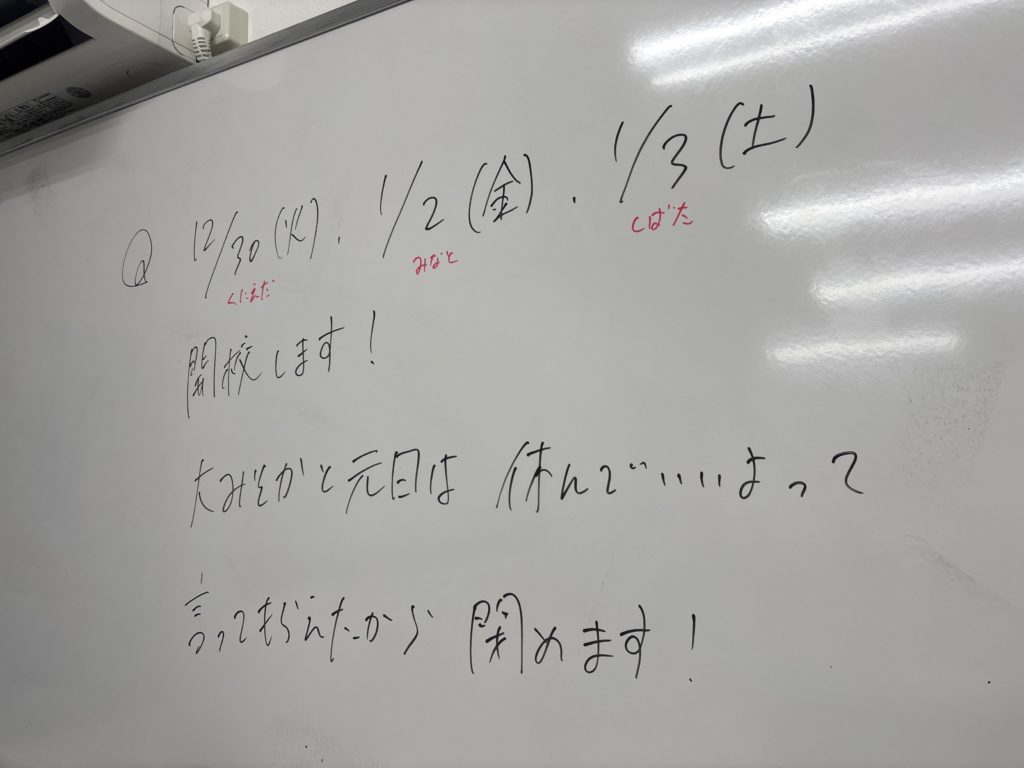 Q 12/30(火)、1/2(金)、1/3(土)
くにえだ みなと しばた
開校します!
大みそかと元日は休んでいいよって
言ってもらえたから閉めます!